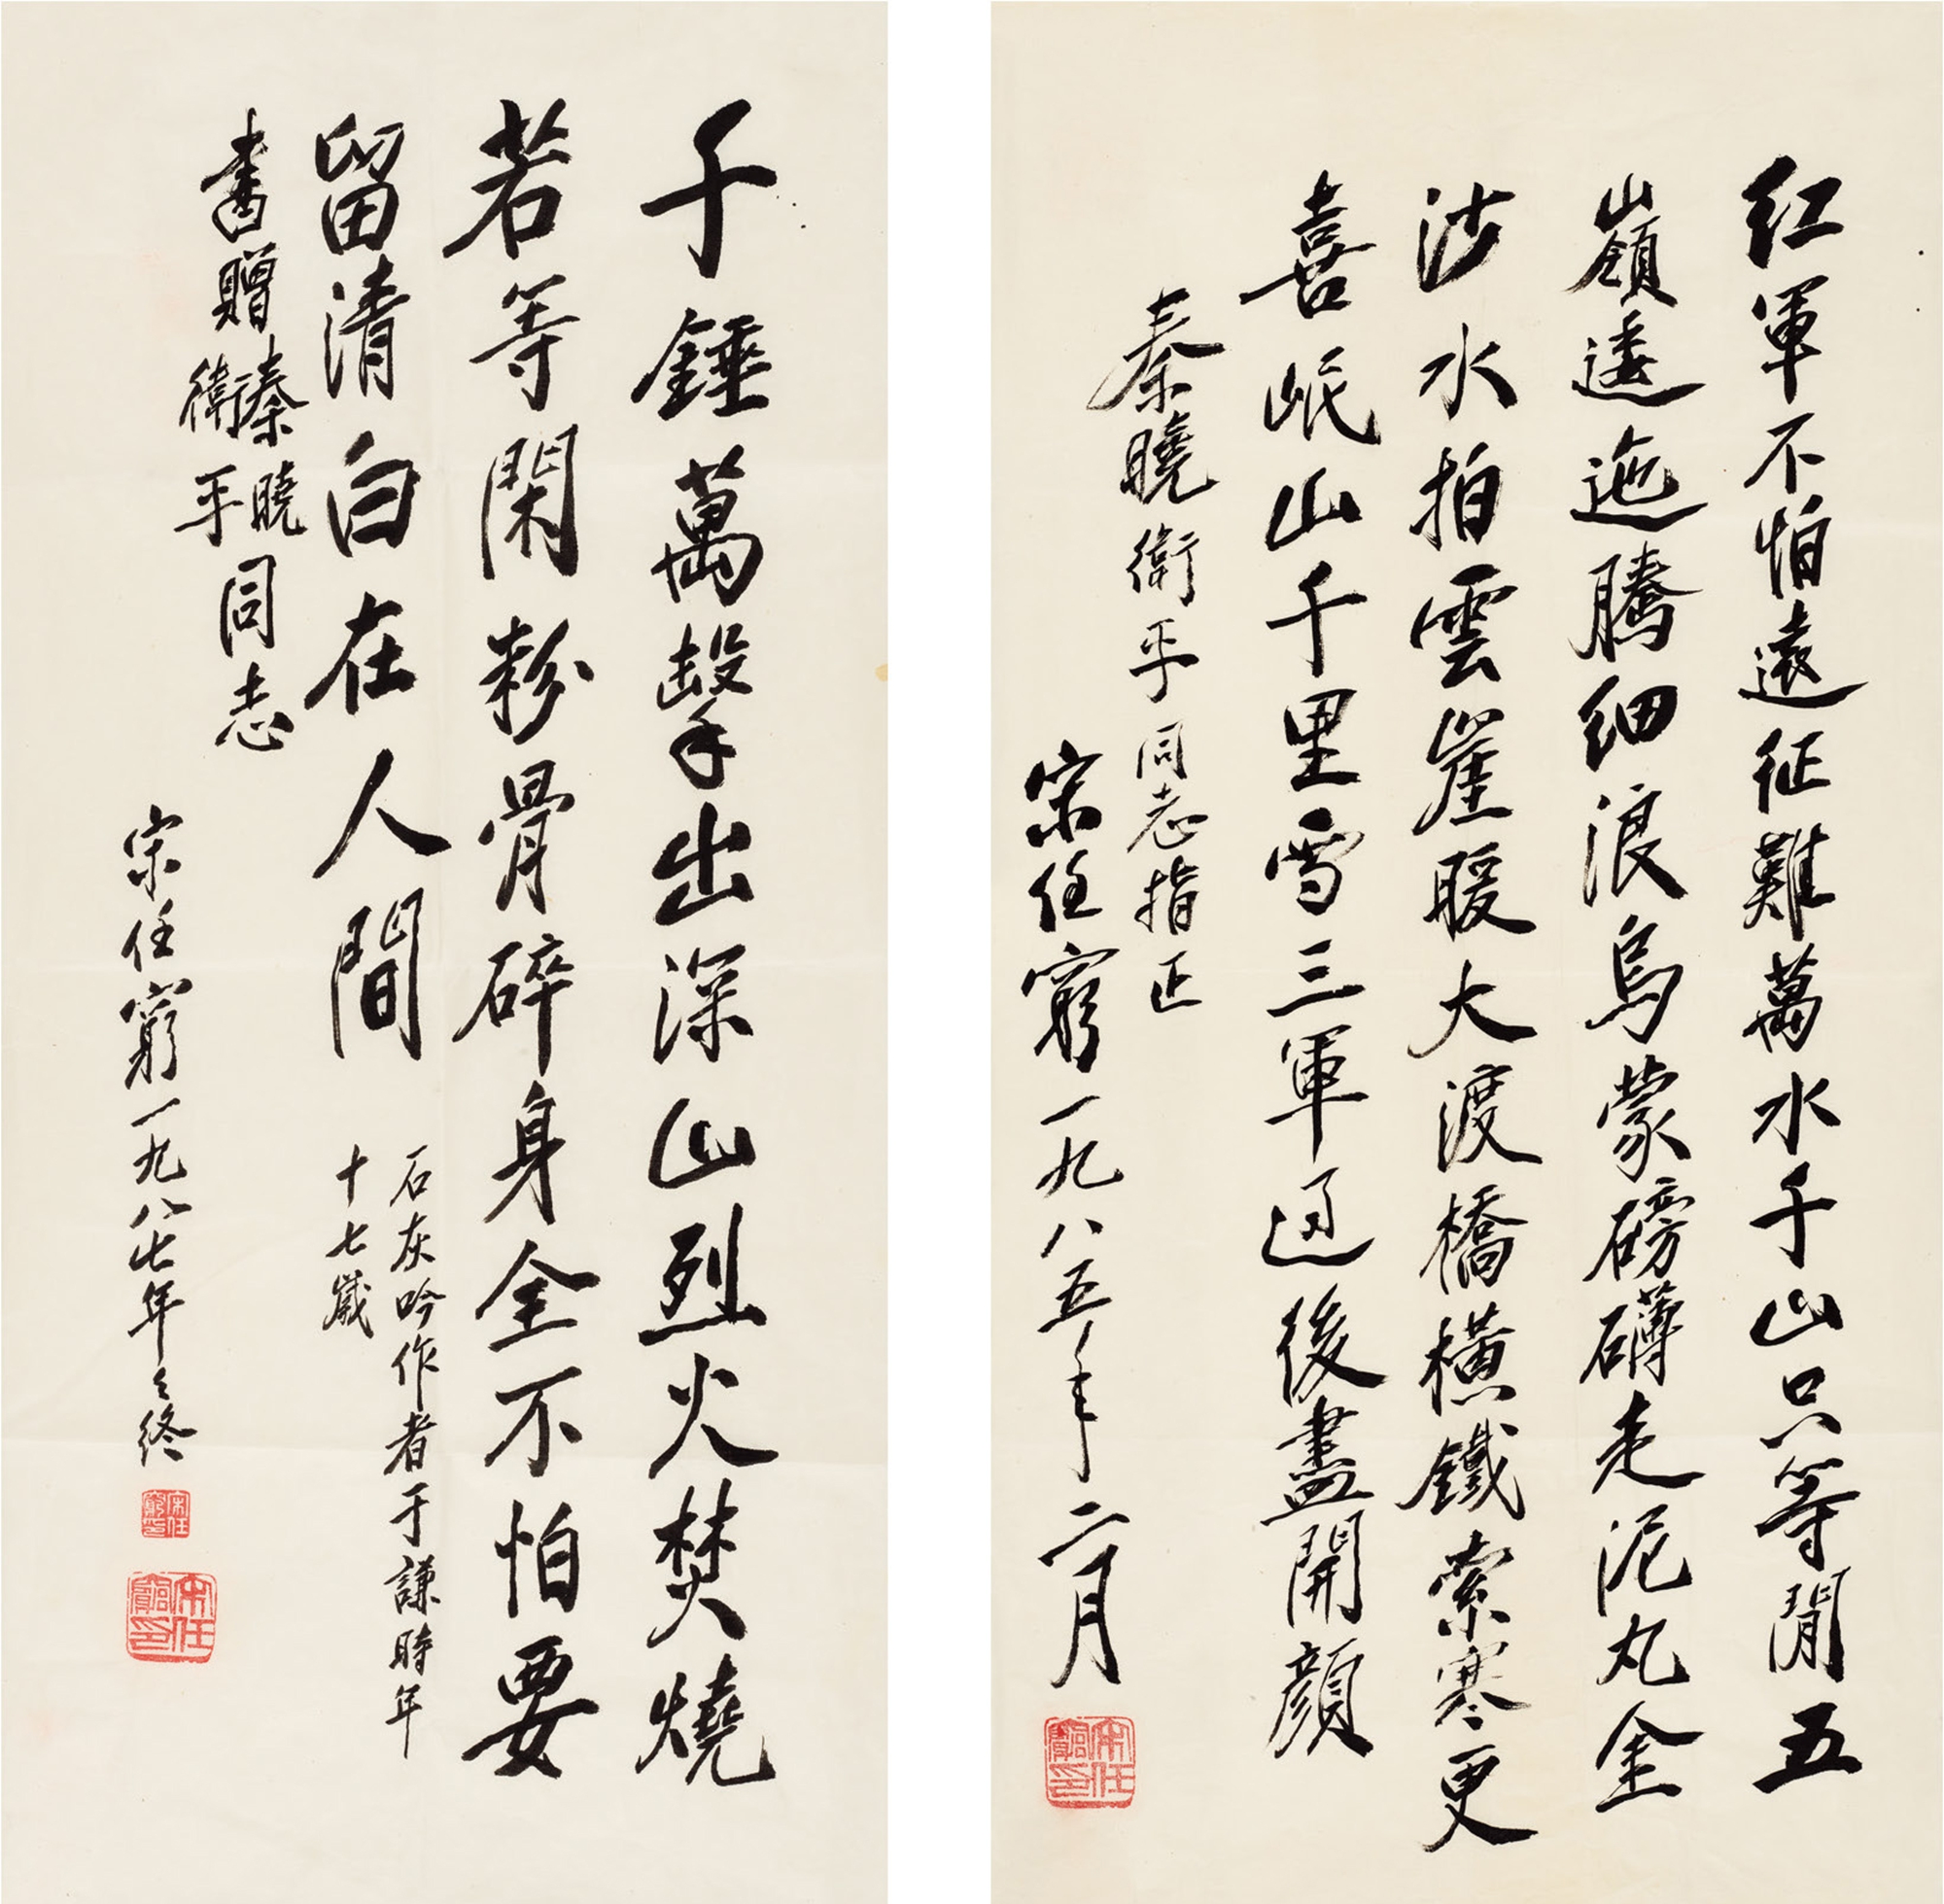 紅軍不怕遠征難萬水千山只等閒五
嶺逶迤騰細浪烏蒙磅礴走泥丸金
沙水拍雲崖暖大渡橋橫鐵索寒更
喜岷山千里雪三軍過後盡開顏
秦曉衛平同志指正
宋任窮一九八五年二月
宋任窮印
千錘萬擊出深山烈火焚燒
若等閑粉骨碎身全不怕要
留清白在人間
石灰吟作者于謙時年
十七歲
書贈秦曉衛平同志
宋任窮一九八七年々終
宋任窮印
宋任窮印